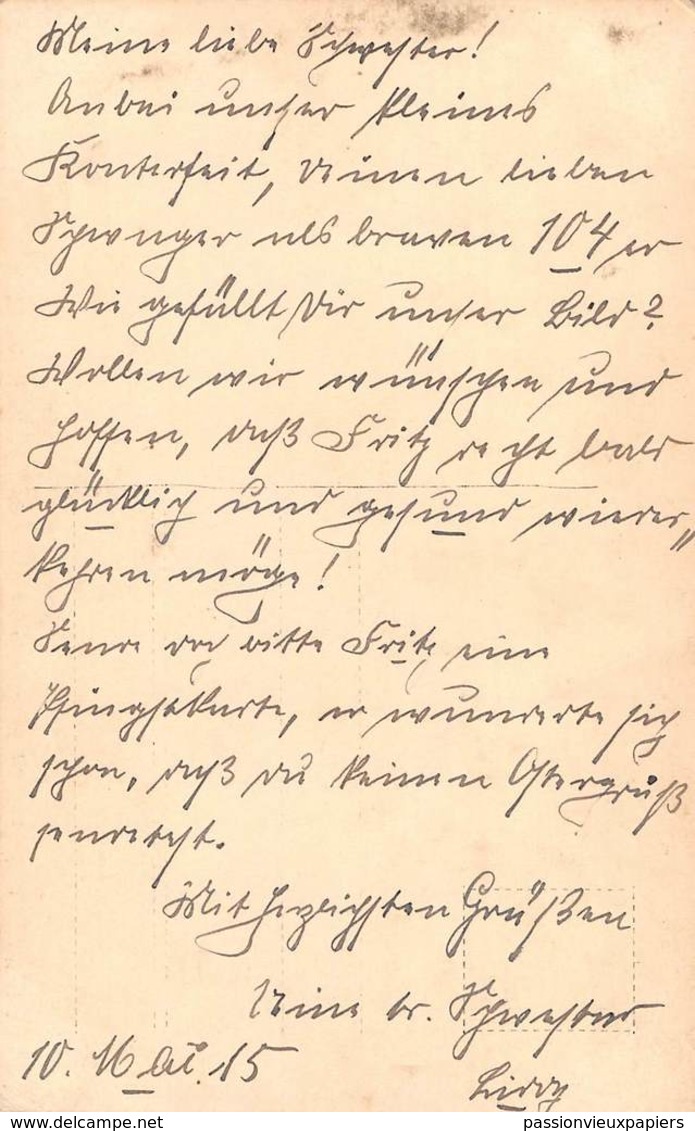 Meine liebe Schwester!
Anbei unser kleines
Konterfeit, Deinen lieben
Schwager als braven 104 er
Wie gefällt Dir unser Bild?
Wollen wir wünschen und
hoffen, daß Fritz recht bald
glücklich und gesund wieder„
kehren möge!
Sende doch bitte Fritz eine
Pfingstkarte, er wunderte sich
schon, daß du keinen Ostergruß
sendetest.
Mit herzlichsten Grüßen
Deine tr. Schwester
10. Mai. 15
passionvieuxpapiers